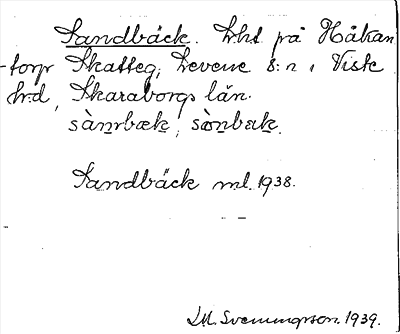 Sandbäck. Lht på Håkan
-torp Skatteg, Levene s:n i Viste
h:d, Skaraborgs län.
sànrbæk, sànbæk.
Sandbäck ml. 1938.
M. Svenungson. 1939.